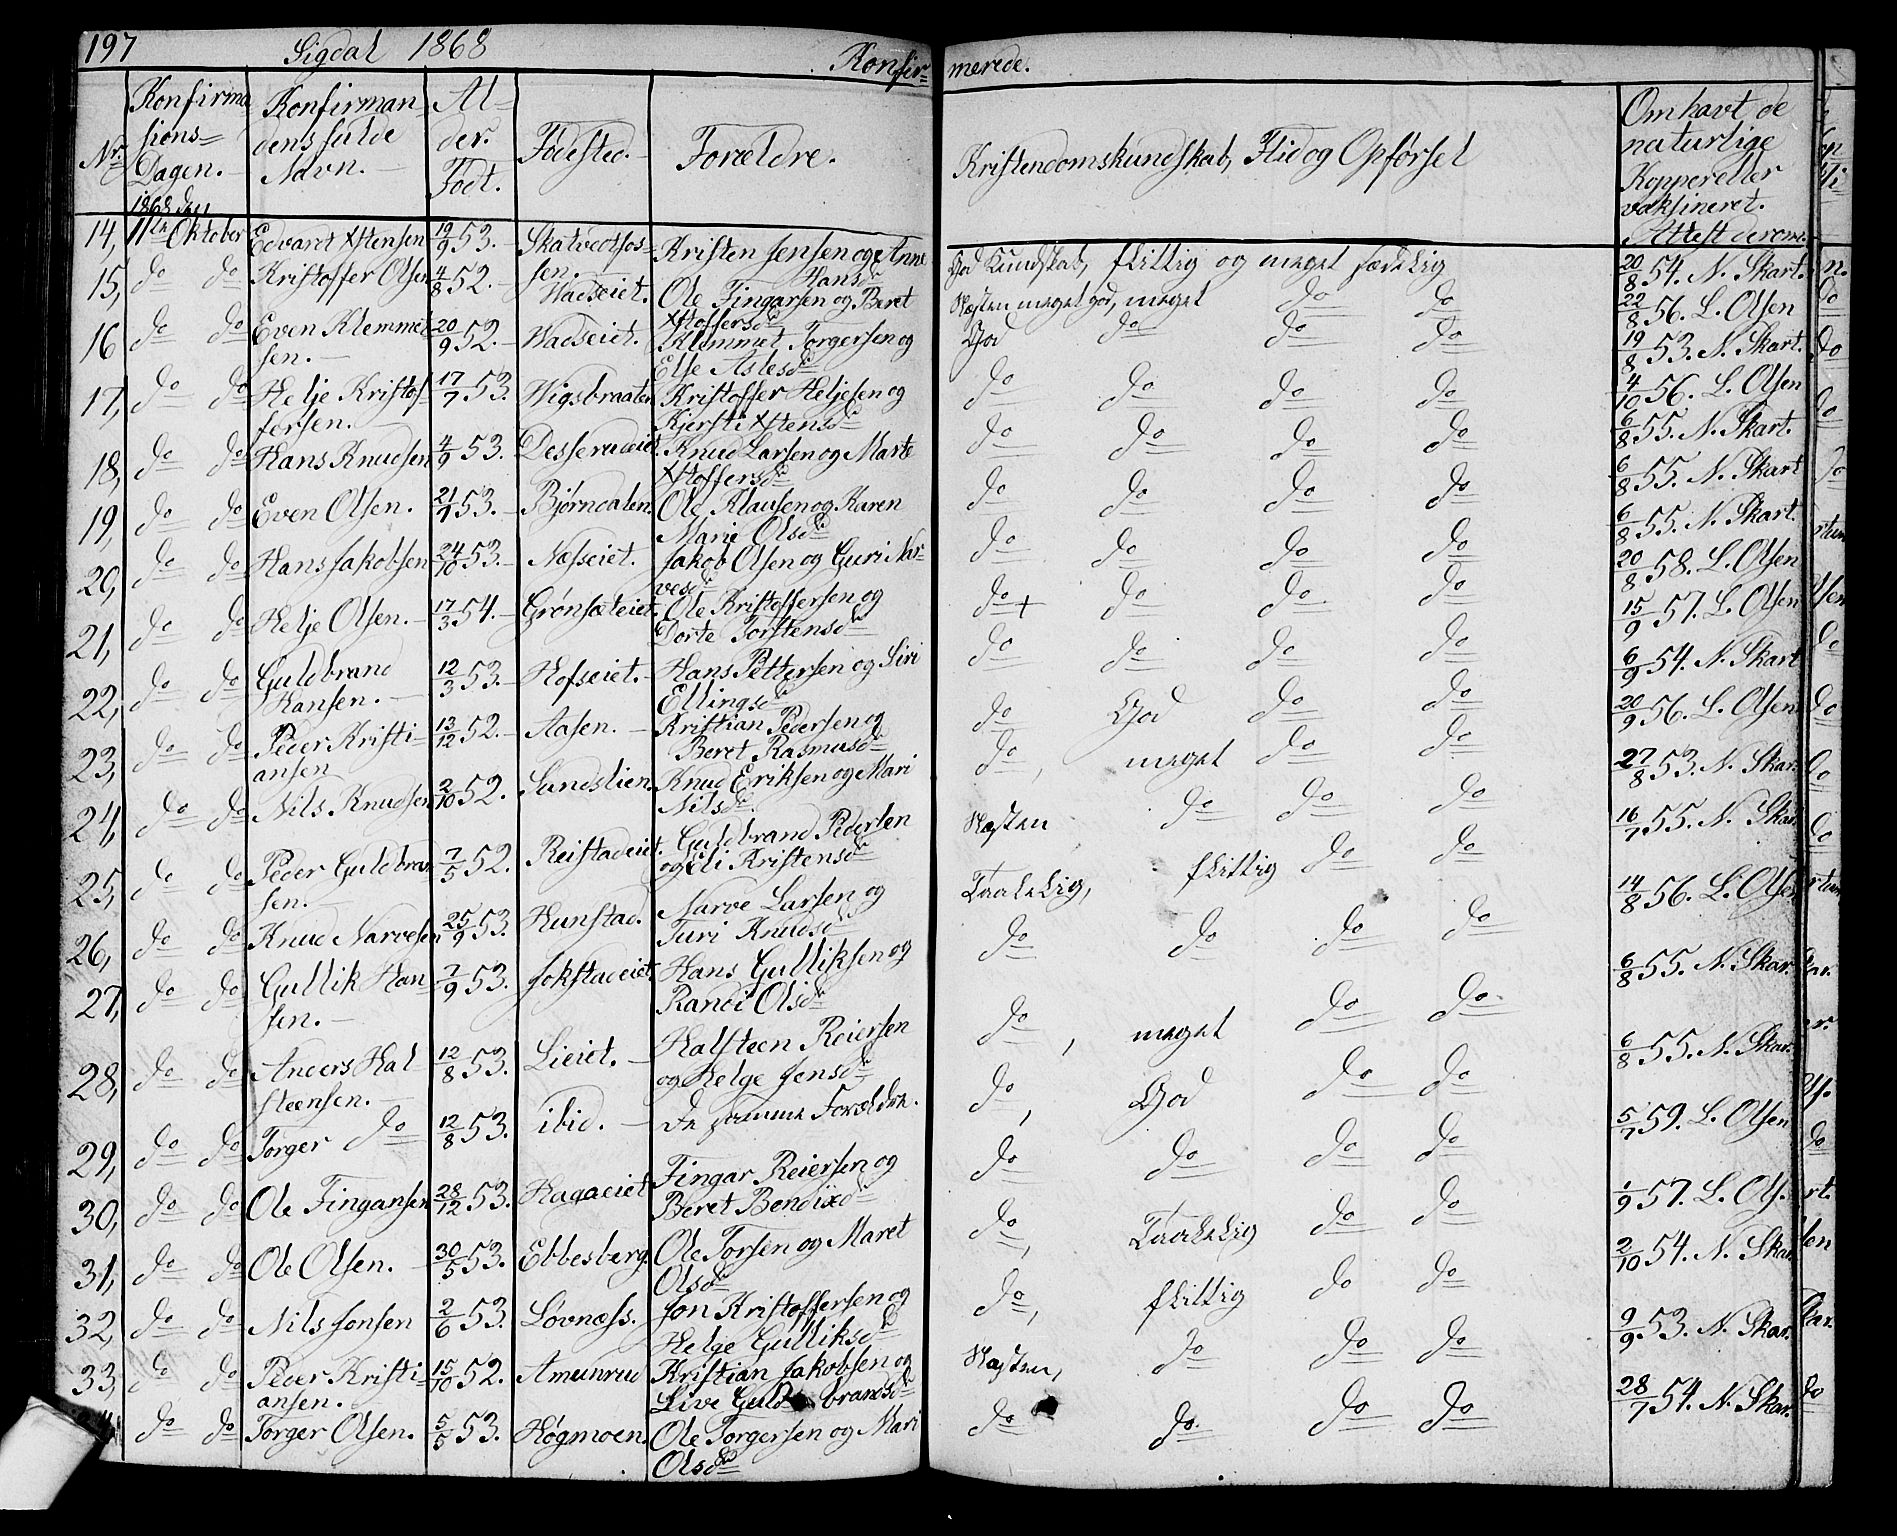 197 Sigdal 1868 Konfir-
merede.
Nr. Konfirma-sions-Dagen. 1868 den Konfirmandens fulde Navn. Alder. Født. Fødested. Forældre.
Kristendomskundskab, Flid og Opførsel Om havt de naturlige Kopper eller vaksineret. Attest derom.
14, 11te Oktober Edvard Xstensen 19/9 53. Skatvedtfos- Kristen Jensen og Anne
sen. Hansd.
God Kundskab, flittig og meget sædelig 20/8 54. N. Skart.
15, do do Kristoffer Olsen 4/8 52. Wadseiet. Ole Fingarsen og Beret
Xstoffersd.
Næsten meget god, meget do do 22/8 56. L. Olsen
16 do do Even Klemmet 20/9 52. Wadseiet. Klemmet Torgersen og
sen. Else Aslesd.
God do do do 19/8 53. N. Skart.
17, do do Helje Kristof- 17/7 53. Wigsbraaten Kristoffer Heljesen og
fersen. Kjersti Xstensd.
do do do do 4/10 56. L. Olsen
18, do do Hans Knudsen 4/9 53. Knud Larsen og Marte
Xstoffersd.
do do do do 6/8 55. N. Skart.
19, do do Even Olsen. 53. Bjørndalen. Ole Klausen og Karen
Marie Olsd.
do do do do 6/8 55. N. Skart
20, do do Hans Jakobsen 24/10 53. Næsseiet. Jakob Olsen og Guri Nar-
vesd.
do do do do 6/8 55. N. Skart.
21, do do Helje Olsen. 17/3 54. Grønsæteiet. Ole Kristoffersen og
Dorte Torstensd.
do + do do do 20/8 58. L. Olsen
22, do do Guldbrand 12/3 53. Hofseiet. Hans Pettersen og Siri
Hansen. Ellingsd.
do do do do 15/9 57. L. Olsen
23, do do Peder Kristi- 13/12 52. Aasen. Kristian Pedersen og
ansen Beret Rasmusd.
do God do do 6/9 54. N. Skart
24, do do Nils Knudsen 2/10 52. Sundslien. Knud Eriksen og Mari
Nilsd.
do, meget do do 20/9 56. L. Olsen
25, do do Peder Guldbran 7/5 52. Reistadeiet. Guldbrand Pedersen
sen. og Eli Kristensd.
Næsten do do do 27/8 53. N. Skar.
26, do do Knud Narvesen 25/9 53. Hunstad. Narve Larsen og
Turi Knudsd.
Taalelig, flittig do do 16/7 55. N. Skar.
27, do do Gullik Han- 7/9 53. Jokstadeiet. Hans Gulliksen og
sen. Randi Olsd.
do do do do 14/8 56. L. Olsen
28, do do Anders Hal 12/8 53. Lieiet. Halsteen Reiersen
steensen. og Helge Jensd.
do, meget do do 6/8 55. N. Skar.
29, do do Torger do 12/8 53. ibid. De samme Forældre.
do, God do do 6/8 55. N. Skar.
30, do do Ole Fingarsen 28/12 53. Hagaeiet Fingar Reiersen og
Beret Bendixd.
do do do do 5/7 59. L. Olsen
31, do do Ole Olsen. 30/5 53. Ebbesberg. Ole Torsen og Maret
Olsd.
do, Taalelig do do 1/9 57. L. Ols.
32, do do Nils Jonsen 2/6 53. Løvnæss. Jon Kristoffersen og
Helge Gulliksd.
do, flittig do do 2/10 54. N. Skar.
33, do do Peder Kristi- 15/10 52. Amunrud Kristian Jakobsen og
ansen. Live Guldbrandsd.
Næsten, do do do 9/9 53. N. Skar.
do do Torger Olsen. 5/5 53. Høgmoen. Ole Torgersen og Mari
Olsd.
do do do do 28/7 54. N. Skar.